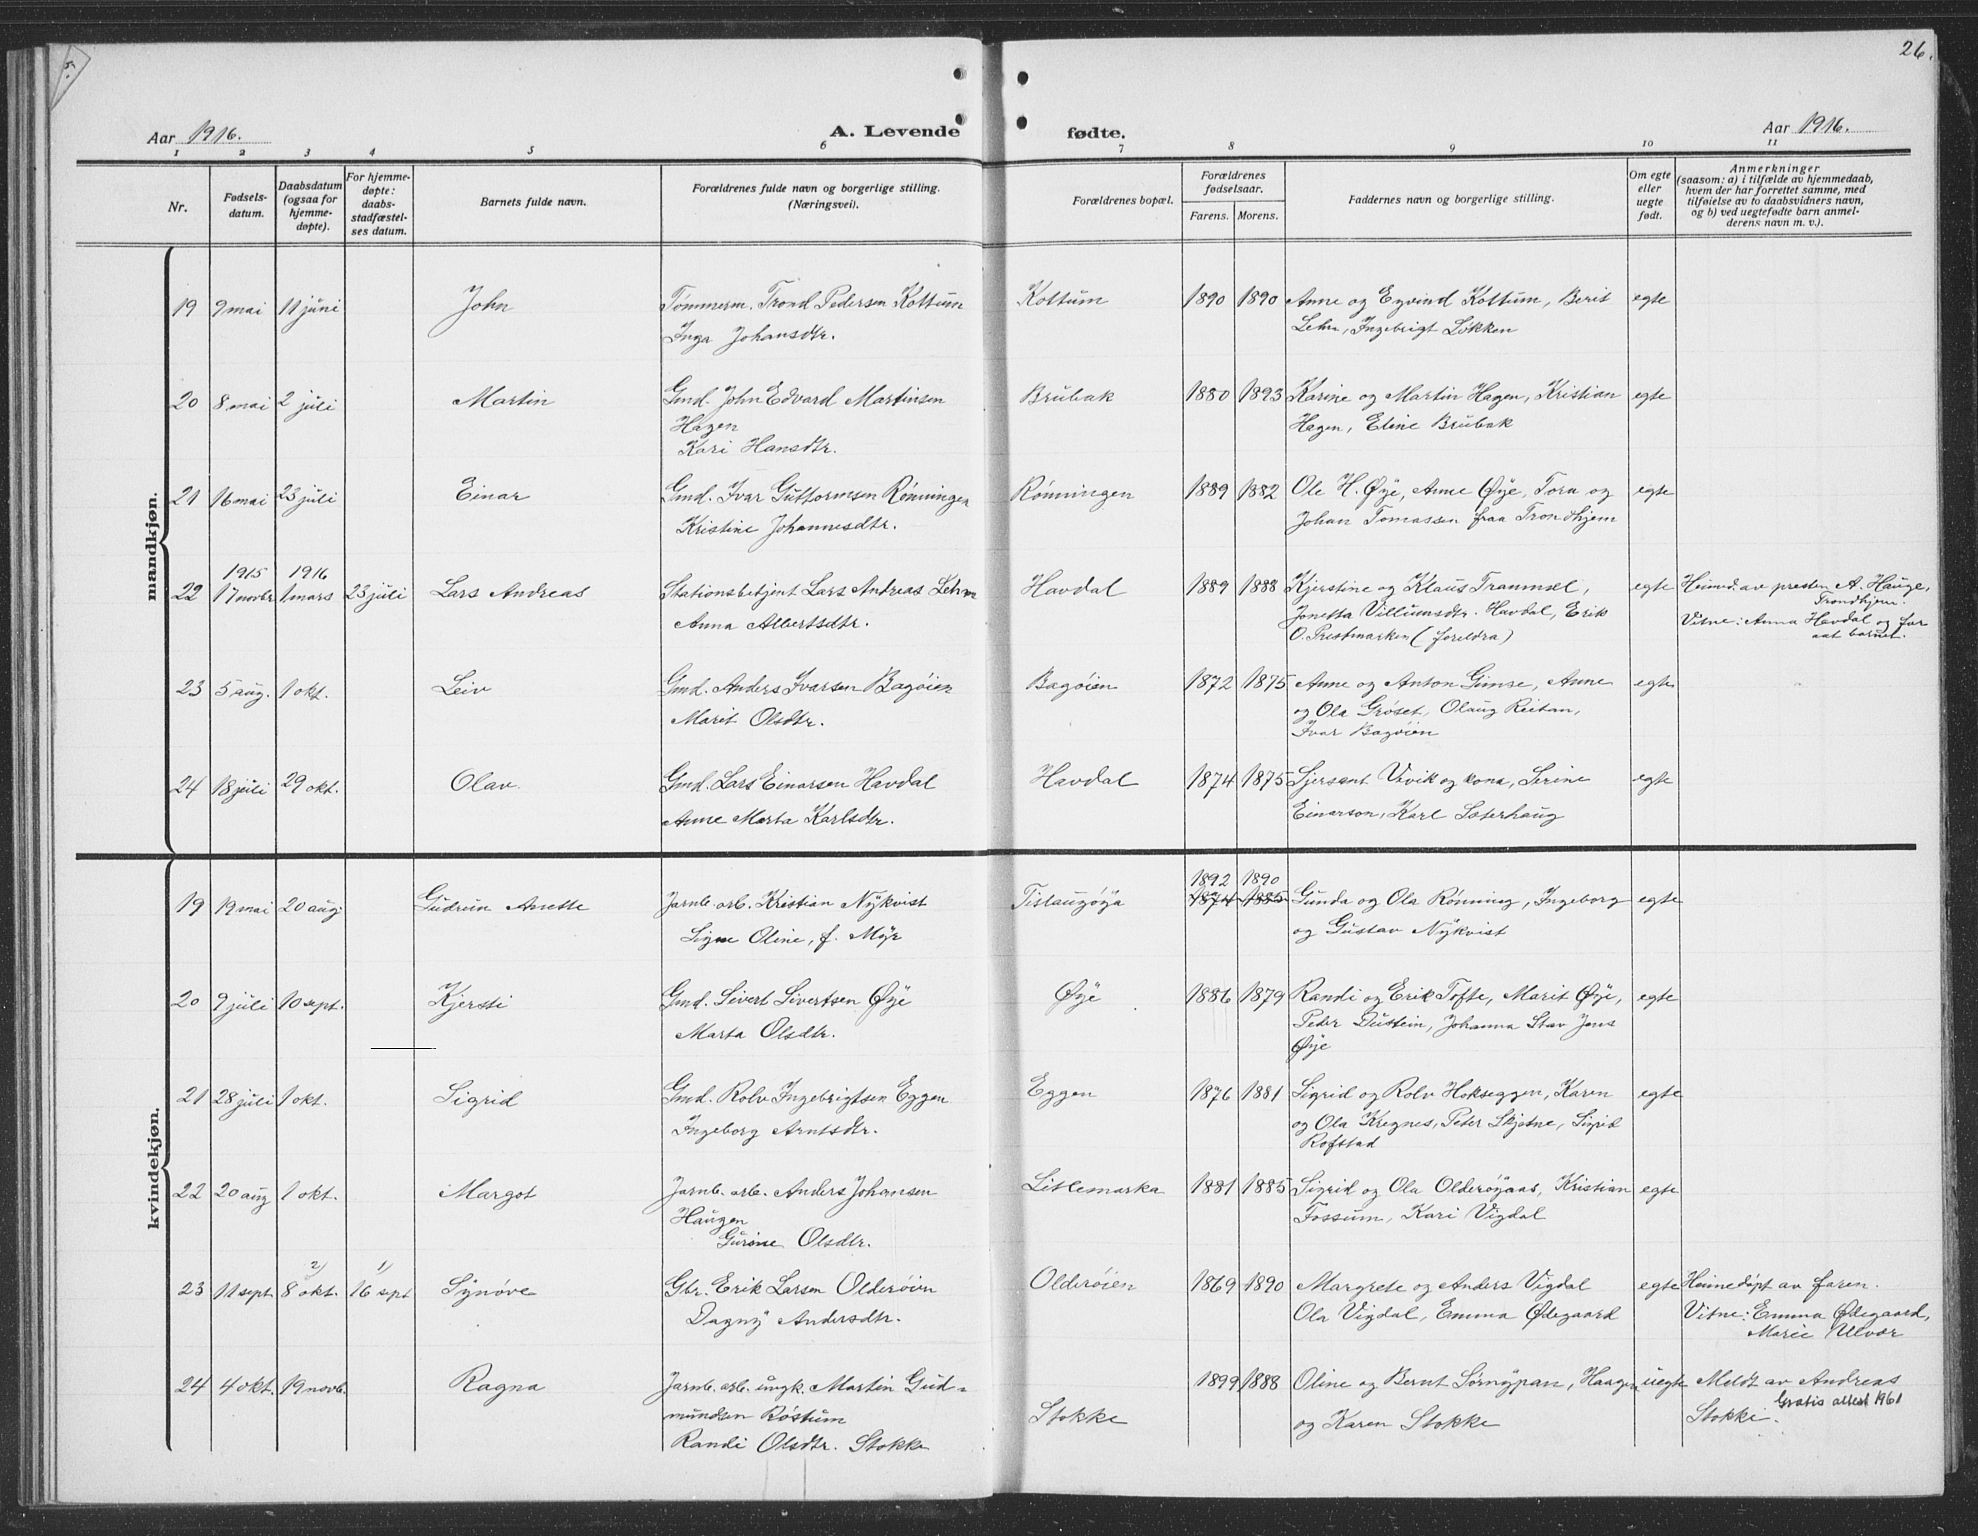 5.
26.
Aar 1916.
A. Levende fødte.
Aar 1916.
1 2 3 4 5 6 7 8 9 10 11
Nr.
Fødsels-
datum.
Daabsdatum
(ogsaa for
hjemme-
døpte).
For hjemme-
døpte:
daabs-
stadfæstel-
ses datum.
Barnets fulde navn.
Forældrenes fulde navn og borgerlige stilling.
(Næringsvei).
Forældrenes bopæl.
Forældrenes
fødselsaar.
Farens. Morens.
Faddernes navn og borgerlige stilling.
Om egte
eller
uegte
født.
Anmerkninger
(saasom: a) i tilfælde av hjemmedaab,
hvem der har forrettet samme, med
tilføielse av to daabsvidners navn,
og b) ved uegtefødte barn anmel-
derens navn m. v.).
mandkjøn.
19 9 mai 11 juni John Tømmerm. Trond Pedersen Kottum Kottum 1890 1890 Anne og Eyvind Kottum, Berit egte
Inga Johansdtr. Lehn, Ingebrigt Løkken
20 8 mai 2 juli Martin Gmd. John Edvard Martinsen Brubak 1880 1893 Karine og Martin Hagen, Kristian egte
Hagen Hagen, Eline Brubak
Kari Hansdtr.
21 16 mai 23 juli Einar Gmd. Ivar Guttormsen Rønningen Rønningen 1889 1882 Ole H. Øye, Anne Øye, Tora og egte
Kristine Johannesdtr. Johan Tomassen fraa Trondhjem
1915 1916
22 17 novbr 1 mars 23 juli Lars Andreas Stationsbetjent Lars Andreas Lehn Havdal 1889 1888 Kjerstine og Klaus Tramsel, egte Heimd. av presten A. Hauge,
Trondhjem.
Anna Albertsdtr. Jonetta Villumsdtr. Havdal, Erik Vitne: Anna Havdal og far
O. Prestmarken (foreldra) aat barnet.
23 5 aug. 1 okt. Leiv Gmd. Anders Ivarsen Bagøien Bagøien 1872 1875 Anne og Anton Gimse, Anne egte
Marit Olsdtr. og Ola Grøset, Olaug Reitan,
Ivar Bagøien
24 18 juli 29 okt. Olav Gmd. Lars Einarsen Havdal Havdal 1874 1875 Sjersant Vivik og kona, Serine egte
Anne Marta Karlsdtr. Einarson, Karl Sæterhaug
kvindekjøn.
1892 1890
19 19 mai 20 aug. Gudrun Anette Jarnb. arb. Kristian Nykvist Tislaugøya 1874 1885 Gunda og Ola Rønning, Ingeborg egte
Signe Oline, f. Myr og Gustav Nykvist
20 9 juli 10 sept. Kjersti Gmd. Sivert Sivertsen Øye Øye 1886 1879 Randi og Erik Tofte, Marit Øye, egte
Marta Olsdtr. Peder Dustein, Johanna Stav Jens
Øye
21 28 juli 1 okt. Sigrid Gmd. Rolv Ingebrigtsen Eggen Eggen 1876 1881 Sigrid og Rolv Hokseggen, Karen egte
Ingeborg Arntsdtr. og Ola Kregnes, Peter Skjetne, Sigrid
Rofstad
22 20 aug 1 okt. Margot Jarnb. arb. Anders Johansen Litlemarka 1881 1885 Sigrid og Ola Olderøyaas, Kristian egte
Haugen Fossum, Kari Vigdal
Gurine Olsdtr.
2) 1)
23 11 sept 8 okt. 16 sept Synøve Gbr. Erik Larsen Olderøien Olderøien 1869 1890 Margrete og Anders Vigdal egte Heimedøpt av faren.
Dagny Andersdtr. Ola Vigdal, Emma Ødegaard Vitne: Emma Ødegaard,
Marie Ulvær
24 4 okt. 19 novb. Ragna Jarnb. arb. ungk. Martin Gud- 1899 1888 Oline og Bernt Sørnypan, Haagen uegte Meldt av Andreas
mundsen Røstum Stokke og Karen Stokke Stokke. Gratis attest 1961
Randi Olsdtr. Stokke